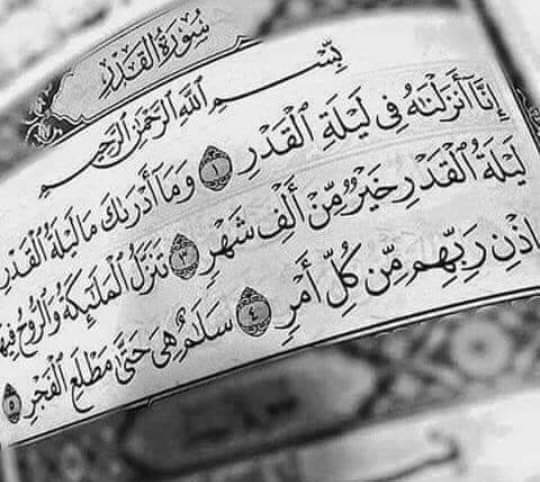 سُورَةُ القَدْرِ
بِسْمِ اللَّهِ الرَّحْمَٰنِ الرَّحِيمِ
إِنَّا أَنزَلْنَٰهُ فِى لَيْلَةِ ٱلْقَدْرِ ١ وَمَآ أَدْرَىٰكَ مَا لَيْلَةُ ٱلْقَدْرِ
لَيْلَةُ ٱلْقَدْرِ خَيْرٌ مِّنْ أَلْفِ شَهْرٍ ٣ تَنَزَّلُ ٱلْمَلَٰٓئِكَةُ وَٱلرُّوحُ فِيهَا
إِذْنِ رَبِّهِم مِّن كُلِّ أَمْرٍ ٤ سَلَٰمٌ هِىَ حَتَّىٰ مَطْلَعِ ٱلْفَجْرِ ٥